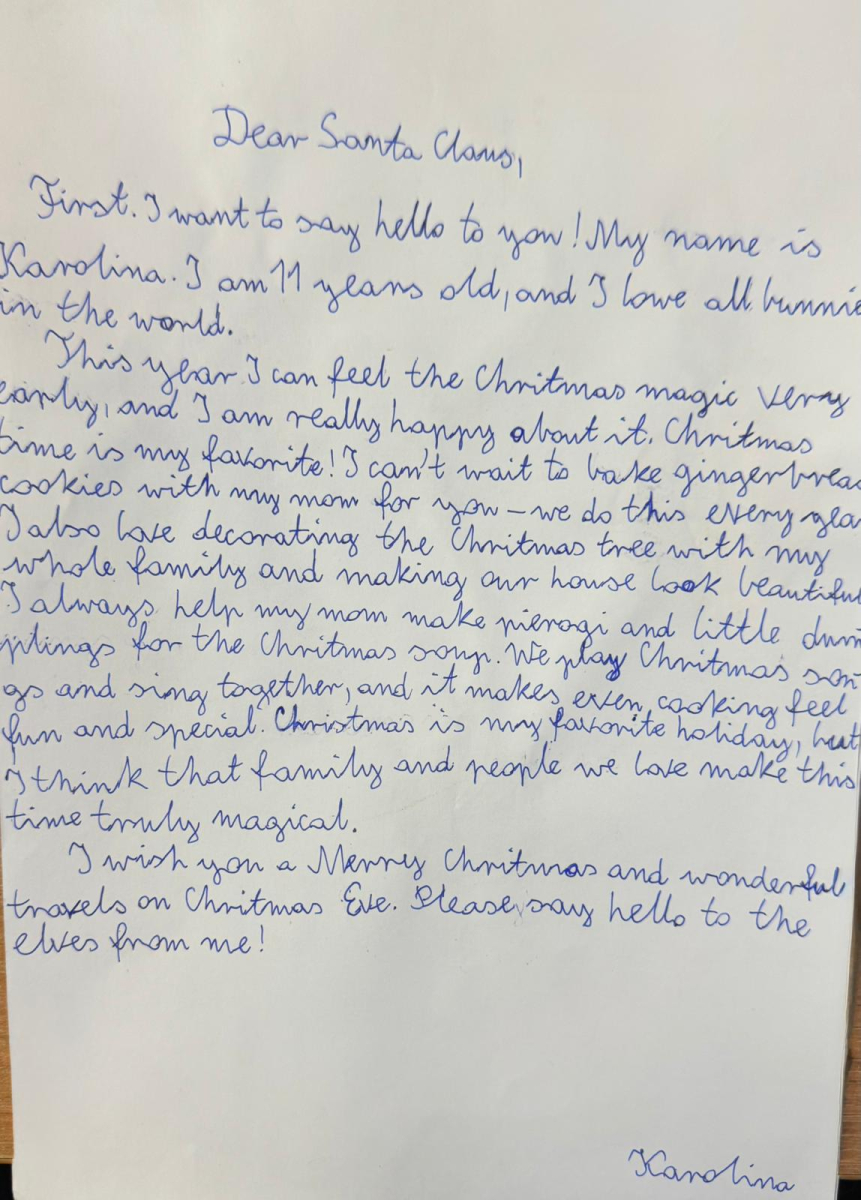 Dear Santa Claus,
First. I want to say hello to you! My name is
Karolina. I am 11 years old, and I lowe all bunnie
in the world.
This year I can feel the Chritmas magic verry
early, and I am really happy about it. Chritmas
time is my favorite! I can't wait to bake gingerbread
cookies with my mom for you – we do this every year
I also love decorating the Chritmas tree with my
whole family and making our house look beautiful
I always help my mom make pierogi and little dum
plings for the Chritmas soup. We play Chritmas son
gs and sing together, and it makes even cooking feel
fun and special. Christmas is my favorite holiday, but
I think that family and people we love make this
time truly magical.
I wish you a Merry Chritmas and wonderful
travels on Chritmas Eve. Please, say hello to the
elves from me!
Karolina